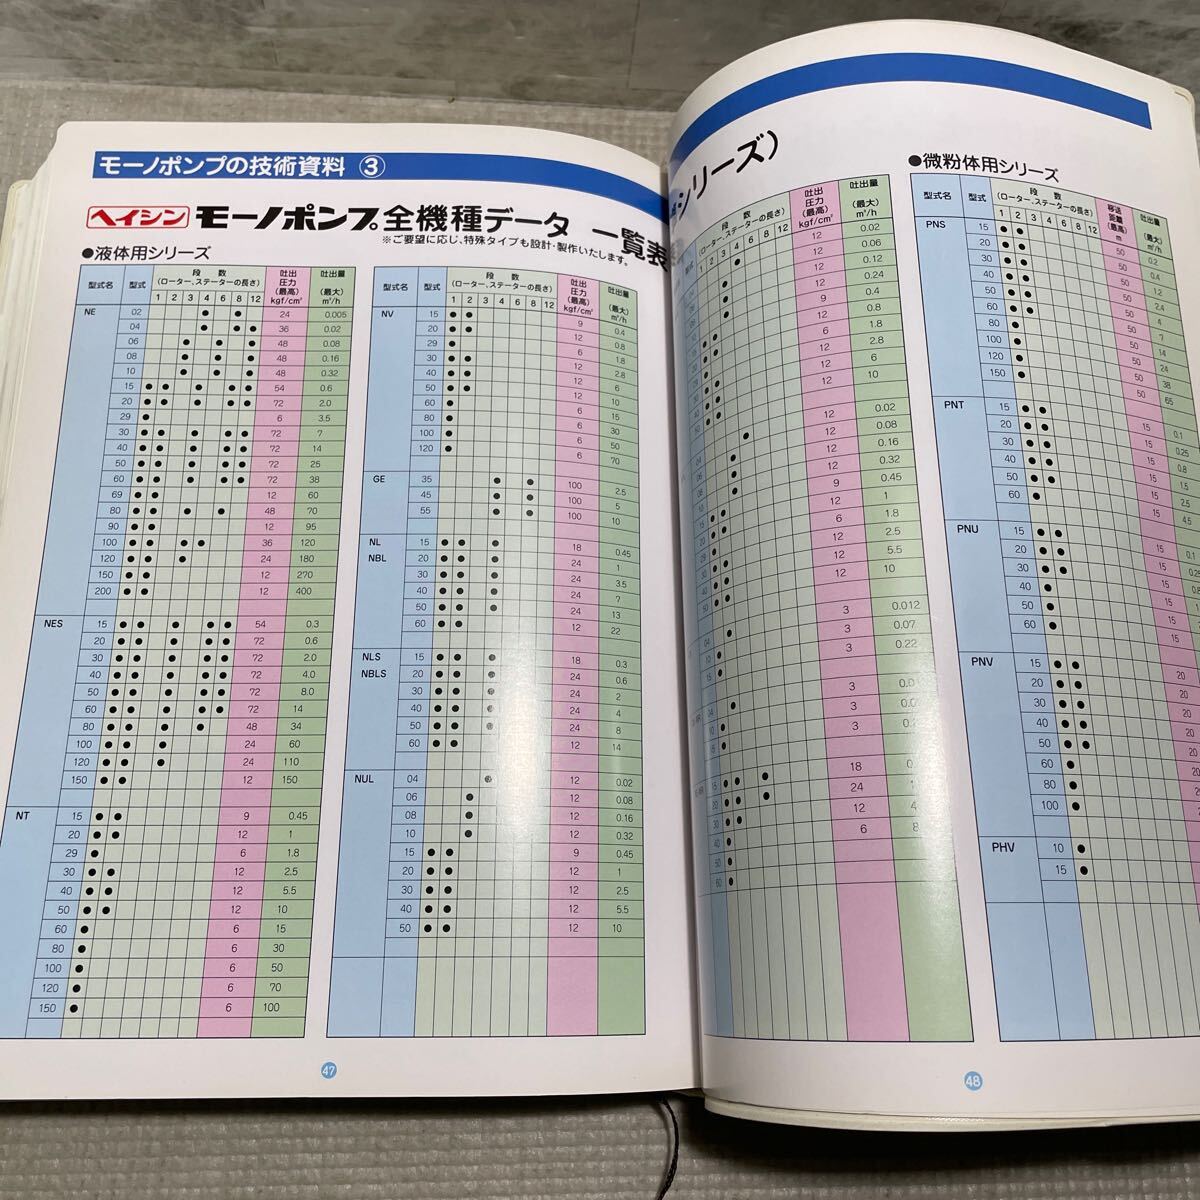 モーノポンプの技術資料 ③
ヘイシン モーノポンプ全機種データ 一覧表
※ご要望に応じ、特殊タイプも設計・製作いたします。
●液体用シリーズ
型式名 型式 段数 (ローター、ステーターの長さ) 吐出圧力 (最高) kgf/cm² 吐出量 (最大) m³/h
1 2 3 4 6 8 12
NE 02 ● ● 24 0.005
04 ● ● ● 36 0.02
06 ● ● ● 48 0.08
08 ● ● ● 48 0.16
10 ● ● ● 48 0.32
15 ● ● ● ● ● 54 0.6
20 ● ● ● ● ● 72 2.0
29 ● 6 3.5
30 ● ● ● ● ● 72 7
40 ● ● ● ● ● 72 14
50 ● ● ● ● ● 72 25
60 ● ● ● ● ● 72 38
69 ● ● 12 60
80 ● ● ● ● 48 70
90 ● ● 12 95
100 ● ● ● ● 36 120
120 ● ● ● 24 180
150 ● ● 12 270
200 ● ● 12 400
NES 15 ● ● ● ● ● 54 0.3
20 ● ● ● ● ● 72 0.6
30 ● ● ● ● ● 72 2.0
40 ● ● ● ● ● 72 4.0
50 ● ● ● ● ● 72 8.0
60 ● ● ● ● ● 72 14
80 ● ● ● ● 48 34
100 ● ● ● 24 60
120 ● ● ● 24 110
150 ● ● 12 150
NT 15 ● ● 9 0.45
20 ● ● 12 1
29 ● 6 1.8
30 ● ● 12 2.5
40 ● ● 12 5.5
50 ● ● 12 10
60 ● 6 15
80 ● 6 30
100 ● 6 50
120 ● 6 70
150 ● 6 100
型式名 型式 段数 (ローター、ステーターの長さ) 吐出圧力 (最高) kgf/cm² 吐出量 (最大) m³/h
1 2 3 4 6 8 12
NV 15 ● ● 9 0.4
20 ● ● 12 0.8
29 ● 6 1.8
30 ● ● 12 2.8
40 ● ● 12 6
50 ● ● 12 10
60 ● 6 15
80 ● 6 30
100 ● 6 50
120 ● 6 70
GE 35 ● ● 100 2.5
45 ● ● 100 5
55 ● ● 100 10
NL 15 ● ● ● 18 0.45
NBL 20 ● ● ● 24 1
30 ● ● ● 24 3.5
40 ● ● ● 24 7
50 ● ● ● 24 13
60 ● ● 12 22
NLS 15 ● ● ● 18 0.3
NBLS 20 ● ● ● 24 0.6
30 ● ● ● 24 2
40 ● ● ● 24 4
50 ● ● ● 24 8
60 ● ● 12 14
NUL 04 ● 12 0.02
06 ● 12 0.08
08 ● 12 0.16
10 ● 12 0.32
15 ● ● 9 0.45
20 ● ● 12 1
30 ● ● 12 2.5
40 ● ● 12 5.5
50 ● ● 12 10
47
シリーズ)
段数 (ローター、ステーターの長さ) 吐出圧力 (最高) kgf/cm² 吐出量 (最大) m³/h
1 2 3 4 6 8 12
12 0.02
12 0.06
12 0.12
12 0.24
9 0.4
12 0.8
6 1.8
12 2.8
12 6
12 10
12 0.02
12 0.08
12 0.16
12 0.32
9 0.45
12 1
6 1.8
12 2.5
12 5.5
12 10
3 0.012
3 0.07
3 0.22
3
3
3
18
24
12
6
●微粉体用シリーズ
型式名 型式 段数 (ローター、ステーターの長さ) 移送距離 (最高) m 吐出量 (最大) m³/h
1 2 3 4 6 8 12
PNS 15 ● ● 50 0.2
20 ● ● 50 0.4
30 ● ● 50 1.2
40 ● ● 50 2.4
50 ● ● 50 4
60 ● ● 50 7
80 ● 50 14
100 ● 50 24
120 ● 50 38
150 ● 50 65
PNT 15 ● ● 15 0.1
20 ● ● 15 0.25
30 ● ● 15 0.8
40 ● ● 15 1.5
50 ● ● 15 2.5
60 ● 15 4.5
PNU 15 ● ● 15 0.1
20 ● ● 15
30 ● ● 15
40 ● 15
50 ● 15
60 ● 15
PNV 15 ● ● 20
20 ● ● 20
30 ● ● 20
40 ● ● 20
50 ● ● 20
60 ● 20
80 ● 20
100 ● 20
PHV 10 ●
15 ●
48